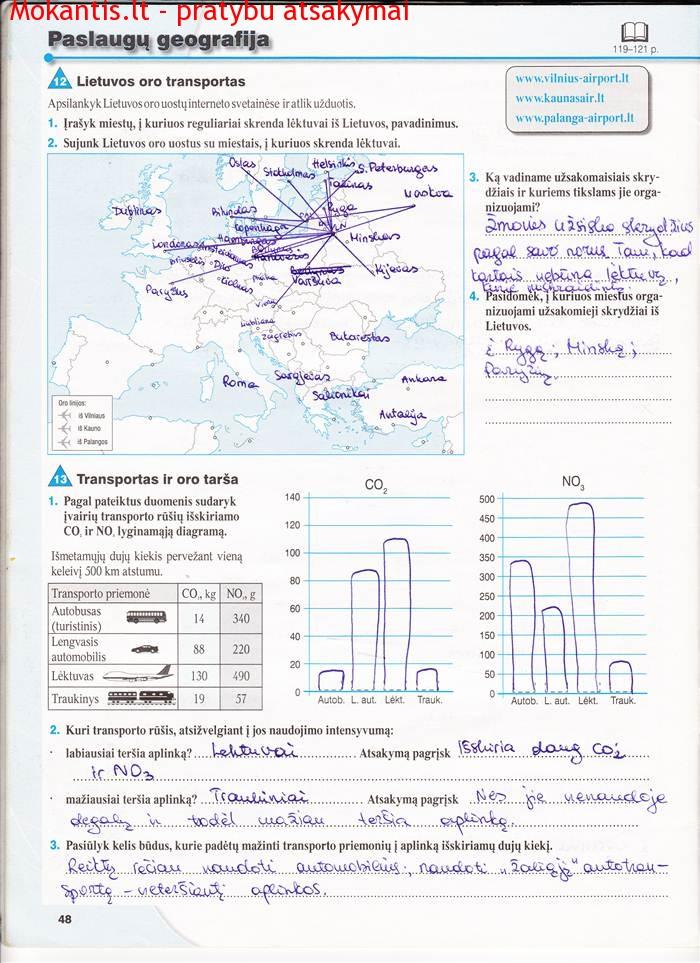 Mokantis.lt - pratybu atsakymai
Paslaugų geografija
119–121 p.
12 Lietuvos oro transportas
Apsilankyk Lietuvos oro uostų interneto svetainėse ir atlik užduotis.
www.vilnius-airport.lt
www.kaunasair.lt
www.palanga-airport.lt
1. Įrašyk miestų, į kuriuos reguliariai skrenda lėktuvai iš Lietuvos, pavadinimus.
2. Sujunk Lietuvos oro uostus su miestais, į kuriuos skrenda lėktuvai.
Oslas
Stokholmas
Helsinkis
S. Peterburgas
Talinas
Maskva
Ryga
Dublinas
Bilundas
Kopenhaga
Minskas
Londonas
Amsterdamas
Hamburgas
Briuselis
Kijevas
Paryžius
Varšuva
Viena
Liubliana
Zagrebas
Bukareštas
Roma
Sarajevas
Salonikai
Ankara
Antalija
Oro linijos:
iš Vilniaus
iš Kauno
iš Palangos
3. Ką vadiname užsakomaisiais skry-
džiais ir kuriems tikslams jie orga-
nizuojami?
Žmonės užsisako skrydžius
pagal savo norus. Tam, kad
4. Pasidomėk, į kuriuos miestus orga-
nizuojami užsakomieji skrydžiai iš
Lietuvos.
į Rygą; Minską;
Paryžių.
13 Transportas ir oro tarša
1. Pagal pateiktus duomenis sudaryk
įvairių transporto rūšių išskiriamo
CO₂ ir NO₃ lyginamąją diagramą.
Išmetamųjų dujų kiekis pervežant vieną
keleivį 500 km atstumu.
Transporto priemonė CO₂, kg NO₃, g
Autobusas
(turistinis) 14 340
Lengvasis
automobilis 88 220
Lėktuvas 130 490
Traukinys 19 57
CO₂
140
120
100
80
60
40
20
0
Autob. L. aut. Lėkt. Trauk.
NO₃
500
450
400
350
300
250
200
150
100
50
0
Autob. L. aut. Lėkt. Trauk.
2. Kuri transporto rūšis, atsižvelgiant į jos naudojimo intensyvumą:
· labiausiai teršia aplinką? Lėktuvai Atsakymą pagrįsk Išskiria daug CO₂
ir NO₃
· mažiausiai teršia aplinką? Traukiniai Atsakymą pagrįsk Nes jie nenaudoja
degalų ir todėl mažiau teršia aplinką.
3. Pasiūlyk kelis būdus, kurie padėtų mažinti transporto priemonių į aplinką išskiriamų dujų kiekį.
Reiktų rečiau naudoti automobilius; naudoti „žaliąjį" autotran-
sportą – neteršiantį aplinkos.
48